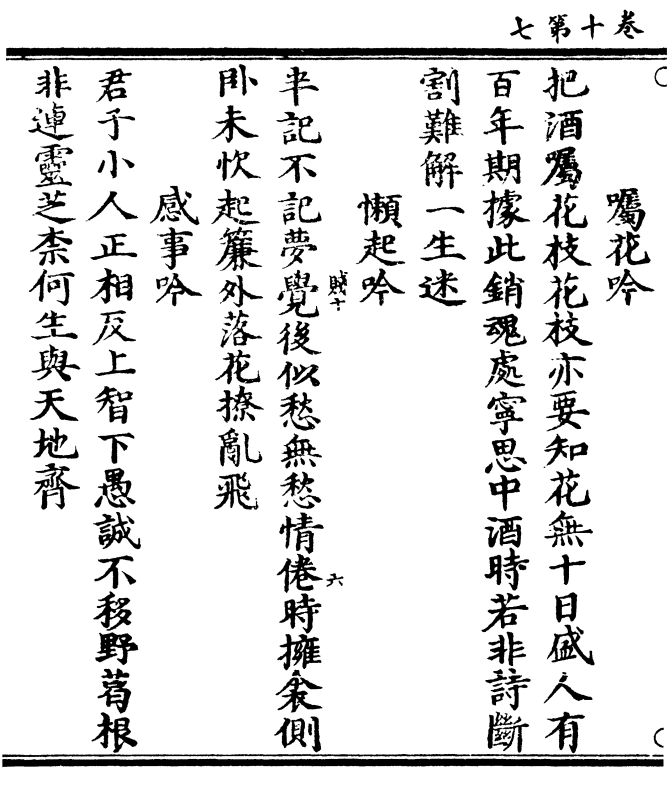 卷十第七
囑花吟
把酒囑花枝花枝亦要知花無十日盛人有
百年期據此銷魂處寧思中酒時若非詩斷
割難解一生迷
懶起吟
賤十
六
半記不記夢覺後似愁無愁情倦時擁衾側
臥未忺起簾外落花撩亂飛
感事吟
君子小人正相反上智下愚誠不移野葛根
非連靈芝柰何生與天地齊